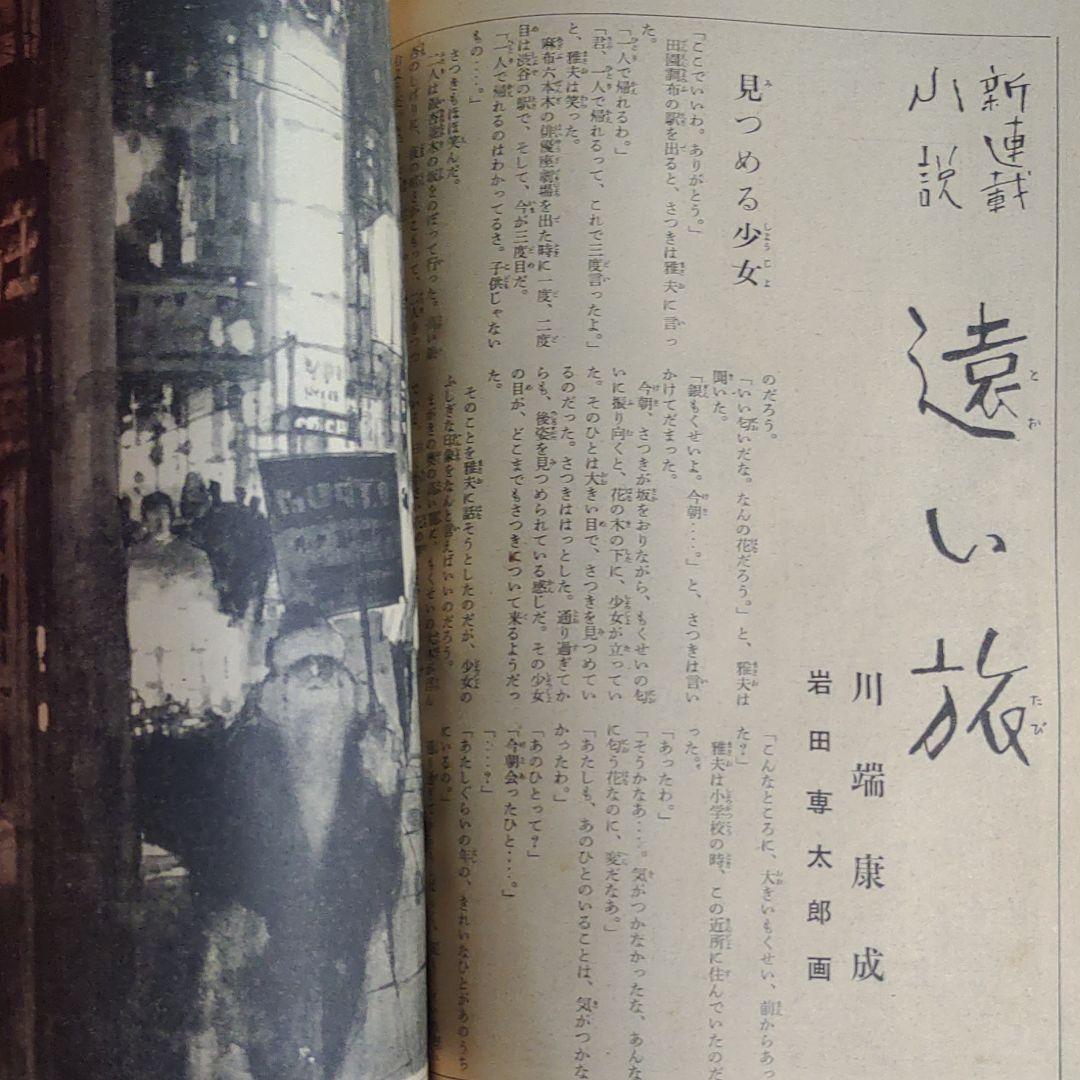 新連載
小説
遠い旅
とお
たび
川端康成
岩田専太郎画
見つめる少女
「ここでいいわ。ありがとう。」
田園調布の駅を出ると、さつきは雅夫に言っ
た。
「一人で帰れるわ。」
「君、一人で帰れるって、これで三度言ったよ。」
と、雅夫は笑った。
麻布六本木の俳優座劇場を出た時に一度、二度
目は渋谷の駅で、そして、今が三度目だ。
「一人で帰れるのはわかってるさ。子供じゃない
もの‥‥。」
さつきもほほ笑んだ。
二人は銀杏並木の坂をのぼって行った。
のだろう。
「いい匂いだな。なんの花だろう。」と、雅夫は
聞いた。
「銀もくせいよ。今朝‥‥。」と、さつきは言い
かけてだまった。
今朝、さつきが坂をおりながら、もくせいの匂
いに振り向くと、花の木の下に、少女が立ってい
た。そのひとは大きい目で、さつきを見つめてい
るのだった。さつきははっとした。通り過ぎてか
らも、後姿を見つめられている感じだ。その少女
の目が、どこまでもさつきについて来るようだっ
た。
そのことを雅夫に話そうとしたのだが、少女の
ふしぎな印象をなんと言えばいいのだろう。
「こんなところに、大きいもくせい、前からあっ
た？」
雅夫は小学校の時、この近所に住んでいたのだ
った。
「あったわ。」
「そうかなあ‥‥。気がつかなかったな、あんな
に匂う花なのに、変だなあ。」
「あたしも、あのひとのいることは、気がつかな
かったわ。」
「あのひとって？」
「今朝会ったひと‥‥。」
「‥‥？」
「あたしぐらいの年の、きれいなひとがあのうち
にいるの。」